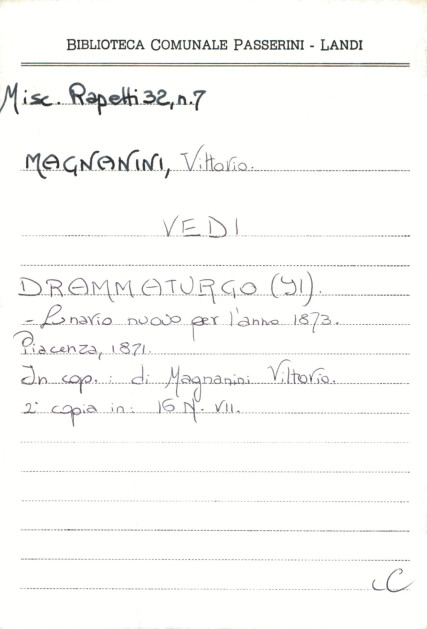 BIBLIOTECA COMUNALE PASSERINI - LANDI
Misc. Rapetti 32, n.7
MAGNANINI, Vittorio.
VEDI
DRAMMATURGO (Il).
- Lunario nuovo per l'anno 1873.
Piacenza, 1871.
In cop.: di Magnanini Vittorio.
2ª copia in: 16 N. VII.